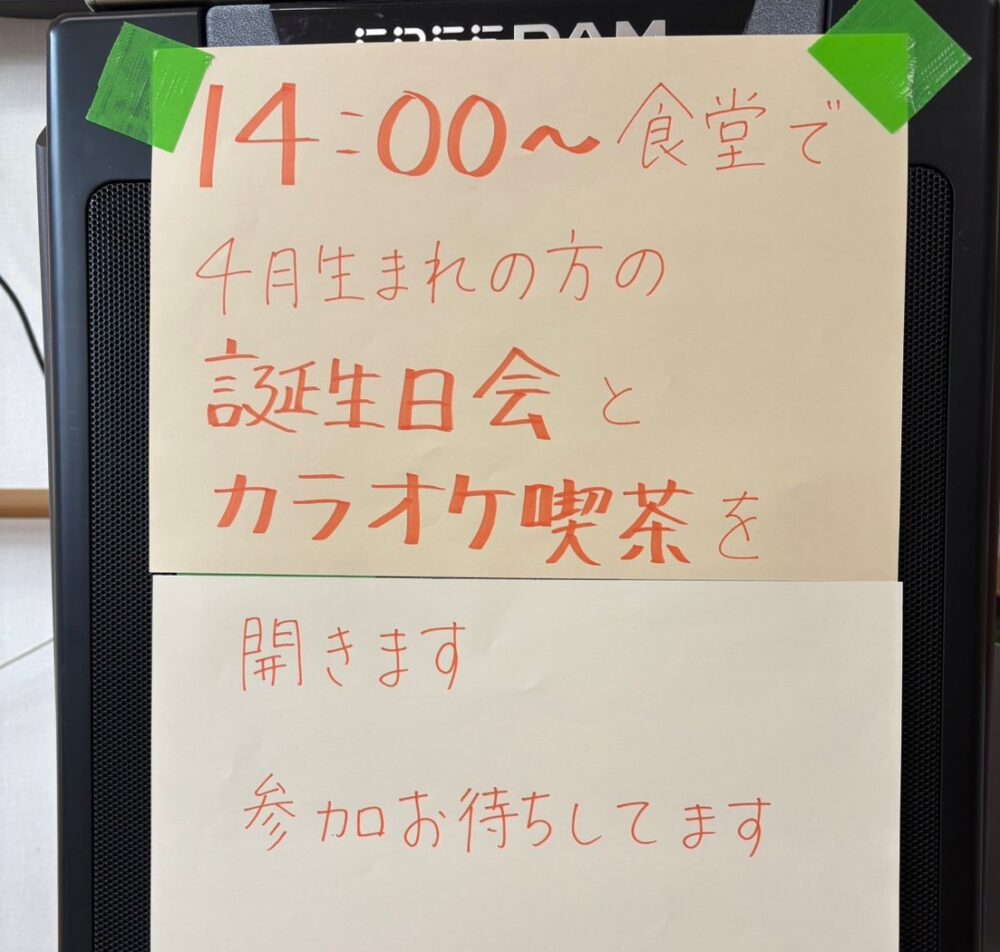 FREE DAM
14:00～食堂で
4月生まれの方の
誕生日会と
カラオケ喫茶を
開きます
参加お待ちしてます